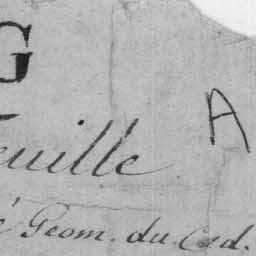 G
A
euille
é Géom. du Cad.